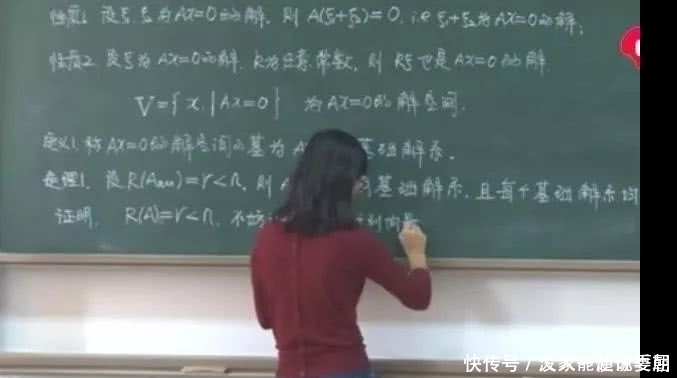 性质1. 设ξ₁ ξ₂为AX=0的解, 则 A(ξ₁+ξ₂)=0, i.e ξ₁+ξ₂为AX=0的解;
性质2. 设ξ为AX=0的解, k为任意常数, 则 kξ也是AX=0的解.
V={x | AX=0} 为AX=0的解空间.
定义1. 称AX=0的解空间的基为A 基础解系.
定理1. 设R(Aₘₓₙ)=r<n, 则A 基础解系, 且每个基础解系均
证明. R(A)=r<n, 不妨 列向量
快传号/